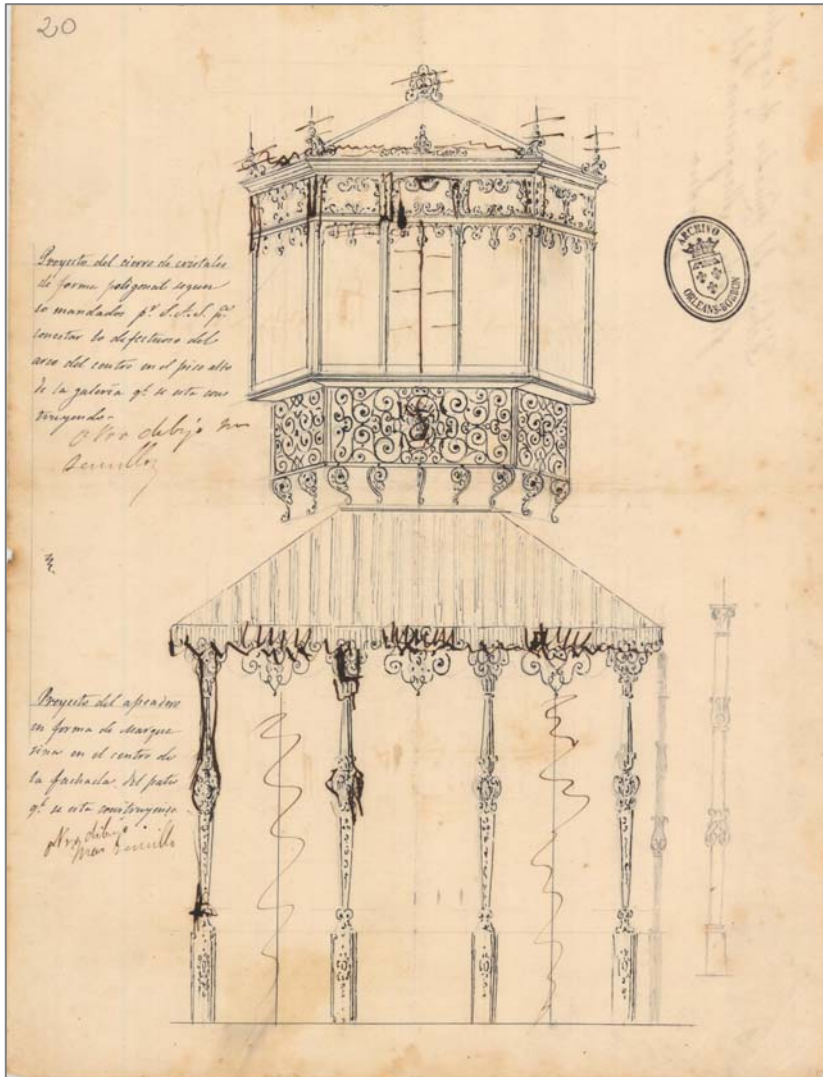 20
Proyecto del cierro de cristales
de forma poligonal segun
lo mandados pr. S.A.S. pa.
conestar lo defectuoso del
arco del centro en el piso alto
de la galeria qe. se esta cons
truyendo.
otro dibujo mas
sencillo
ARCHIVO
ORLEANS-BORBON
Proyecto del apeadero
en forma de Marque
sina en el centro de
la fachada del patio
qe. se esta construyendo
otro dibujo
mas sencillo